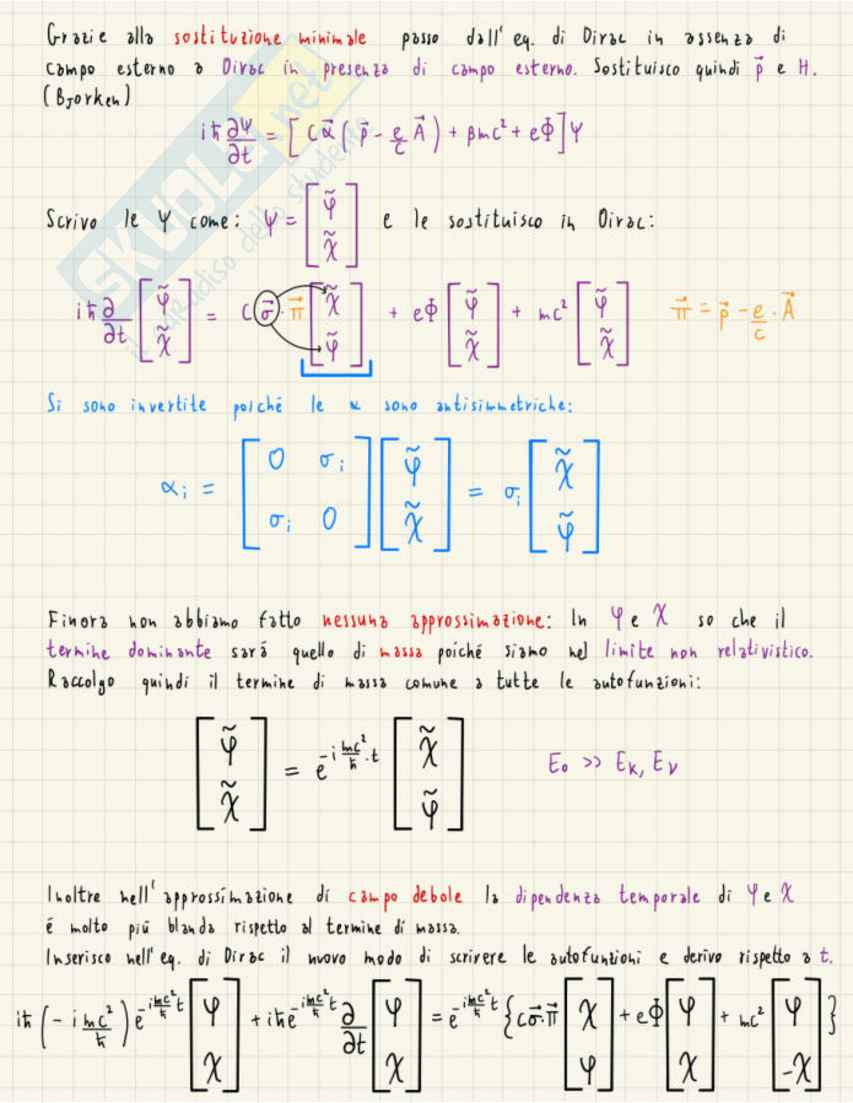 Grazie alla sostituzione minimale passo dall' eq. di Dirac in assenza di
campo esterno a Dirac in presenza di campo esterno. Sostituisco quindi p⃗ e H.
(Bjorken)
iħ ∂Ψ/∂t = [ cα⃗ ( p⃗ - e/c A⃗ ) + βmc² + eΦ ] Ψ
Scrivo le Ψ come: Ψ = [ φ̃ ; χ̃ ] e le sostituisco in Dirac:
iħ ∂/∂t [ φ̃ ; χ̃ ] = cσ⃗ · π⃗ [ χ̃ ; φ̃ ] + eΦ [ φ̃ ; χ̃ ] + mc² [ φ̃ ; χ̃ ] π⃗ = p⃗ - e/c · A⃗
Si sono invertite poiché le α sono antisimmetriche:
αᵢ = [ 0 σᵢ ; σᵢ 0 ] [ φ̃ ; χ̃ ] = σᵢ [ χ̃ ; φ̃ ]
Finora non abbiamo fatto nessuna approssimazione: In φ e χ so che il
termine dominante sará quello di massa poiché siamo nel limite non relativistico.
Raccolgo quindi il termine di massa comune a tutte le autofunzioni:
[ φ̃ ; χ̃ ] = e^(-i mc²/ħ · t) [ χ̃ ; φ̃ ] E₀ >> Eₖ, Eᵥ
Inoltre nell' approssimazione di campo debole la dipendenza temporale di φ e χ
é molto piú blanda rispetto al termine di massa.
Inserisco nell' eq. di Dirac il nuovo modo di scrivere le autofunzioni e derivo rispetto a t.
iħ (-i mc²/ħ) e^(-i mc²/ħ t) [ φ ; χ ] + iħ e^(-i mc²/ħ t) ∂/∂t [ φ ; χ ] = e^(-i mc²/ħ t) { cσ⃗·π⃗ [ χ ; φ ] + eΦ [ φ ; χ ] + mc² [ φ ; -χ ] }
SKUOLA.net
il paradiso dello studente